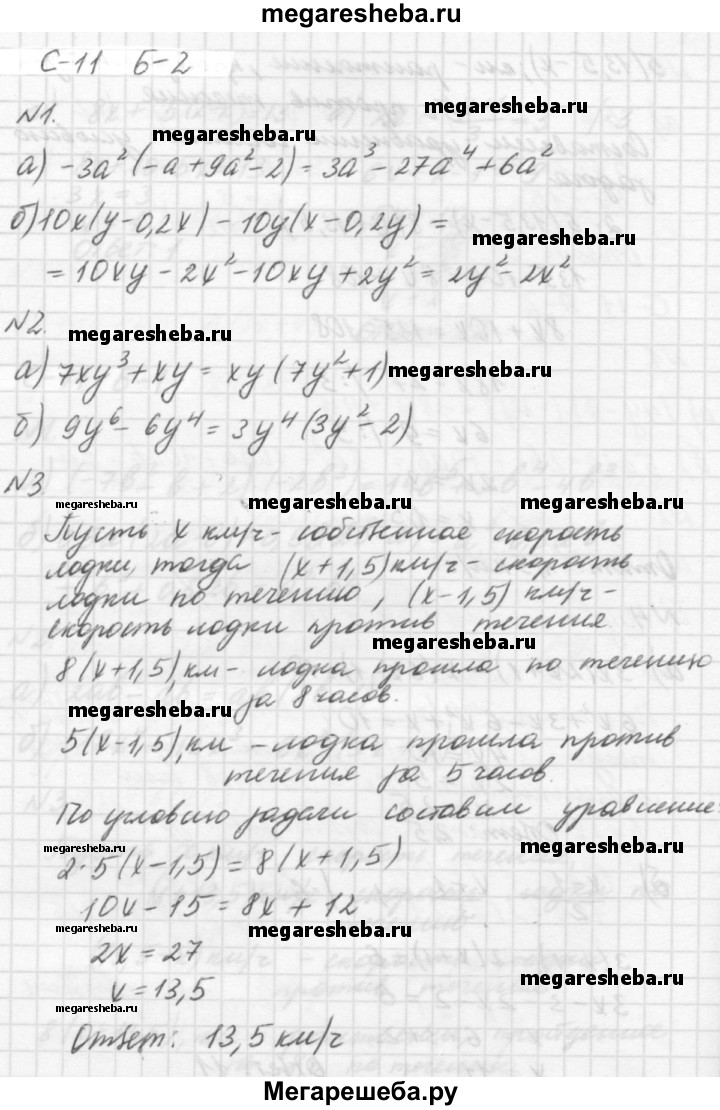 megaresheba.ru
С-11 Б-2
N1.
megaresheba.ru
а) -3a²(-a+9a²-2) = 3a³-27a⁴+6a²
б) 10x(y-0,2x) - 10y(x-0,2y) =
megaresheba.ru
= 10xy - 2x² - 10xy + 2y² = 2y² - 2x²
N2.
megaresheba.ru
а) 7xy³ + xy = xy(7y²+1)
megaresheba.ru
б) 9y⁶ - 6y⁴ = 3y⁴(3y²-2)
N3.
megaresheba.ru megaresheba.ru megaresheba.ru
Пусть x км/ч - собственная скорость
лодки, тогда (x+1,5) км/ч - скорость
лодки по течению, (x-1,5) км/ч -
скорость лодки против течения.
megaresheba.ru
8(x+1,5) км - лодка прошла по течению
за 8 часов.
megaresheba.ru
5(x-1,5), км - лодка прошла против
течения за 5 часов.
По условию задачи составим уравнение:
megaresheba.ru megaresheba.ru
2·5(x-1,5) = 8(x+1,5)
10x-15 = 8x+12
megaresheba.ru
2x = 27
megaresheba.ru
x = 13,5
megaresheba.ru
Ответ: 13,5 км/ч
Мегарешеба.ру